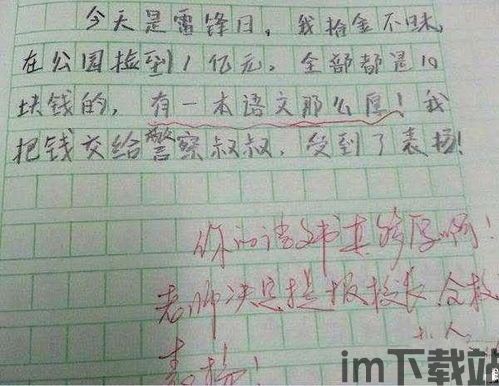 今天是雷锋日，我拾金不昧，
在公园捡到1亿元，全部都是10
块钱的，有一本语文那么厚！我
把钱交给警察叔叔，受到了表扬！
你的语文书真够厚啊！
老师决定提报校长，全校
表扬！
im下载站